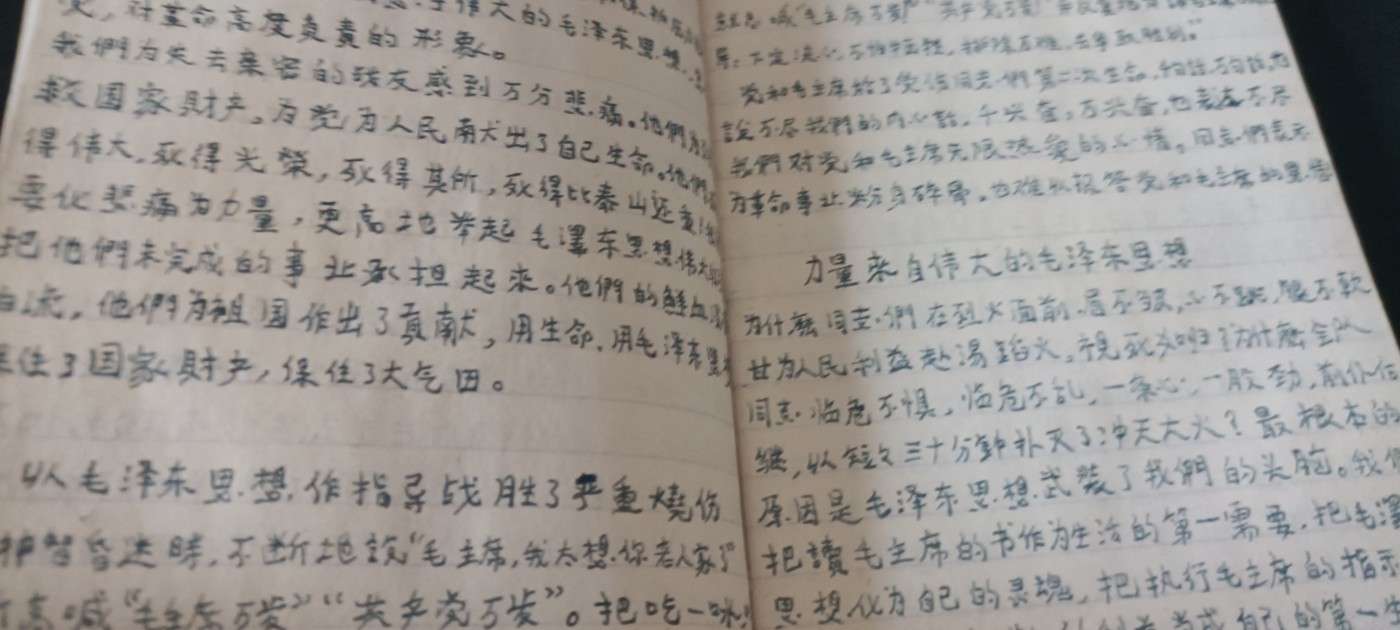 对革命高度负责的形象。
我們为失去亲密的战友感到万分悲痛。他們为了
救国家財产，为党为人民献出了自己生命。他們
得伟大，死得光榮，死得其所，死得比泰山还重
要化悲痛为力量，更高地举起毛澤东思想伟大
把他們未完成的事业承担起来。他們的鲜血
白流，他們为祖国作出了貢献，用生命、用毛泽东思
住了国家財产，保住了大气田。
以毛泽东思想作指导战胜了严重燒伤
神智昏迷時，不断地說“毛主席，我太想你老人家了”
高喊“毛主席万岁”“共产党万岁”。把吃一
喊“毛主席万岁”“共产党万岁”
下定决心，不怕牺牲，排除万难，去争取胜利。”
党和毛主席給了受伤同志們第二次生命，
說不尽我們的内心話，千兴奋，万兴奋，也表达不尽
我們对党和毛主席无限热爱的心情。同志們表示
为革命事业粉身碎骨，也难以报答党和毛主席的恩情
力量来自伟大的毛泽东思想
为什麽同志們在烈火面前，眉不皱，心不跳，腿不軟
甘为人民利益赴湯蹈火，視死如归？为什麽全队
同志临危不惧，临危不乱，一条心，一股劲，前仆后
継，以短短三十分鈡扑灭了冲天大火？最根本的
原因是毛泽东思想武装了我們的头脑。我們
把讀毛主席的书作为生活的第一需要，把毛泽
思想化为自己的灵魂，把执行毛主席的指示
自己的第一